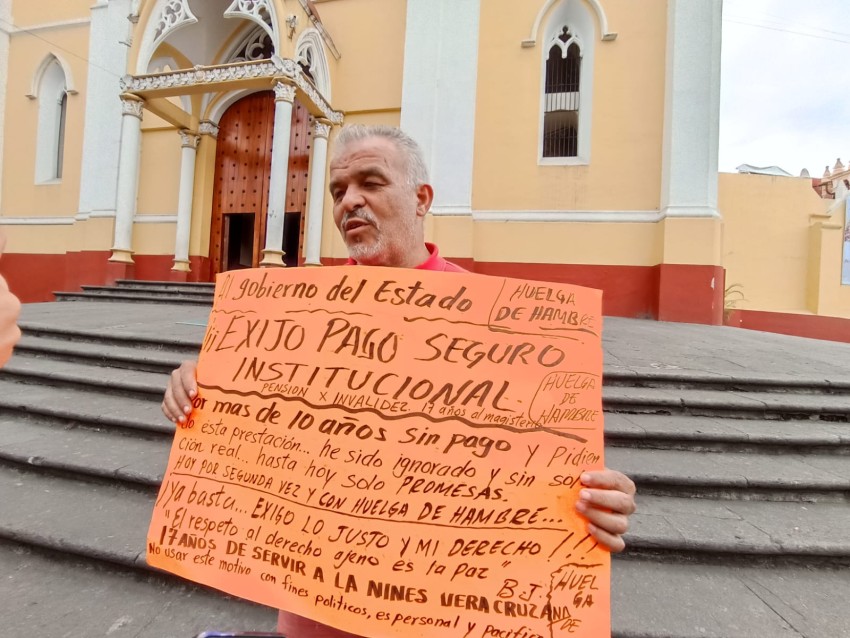 Al gobierno del Estado
HUELGA
DE HAMBRE
¡¡¡EXIJO PAGO SEGURO
INSTITUCIONAL.
PENSION X INVALIDEZ. 17 años al magisterio
HUELGA
DE
HAMBRE
Por mas de 10 años sin pago y Pidien
do esta prestación... he sido ignorado y sin solu
ción real... hasta hoy solo PROMESAS.
HOY POR SEGUNDA VEZ Y CON HUELGA DE HAMBRE...
¡Ya basta... EXIGO LO JUSTO Y MI DERECHO!!!
"El respeto al derecho ajeno es la paz" B.J.
17 AÑOS DE SERVIR A LA NIÑES VERACRUZANA
No usar este motivo con fines políticos, es personal y pacifi
HUEL
GA
DE